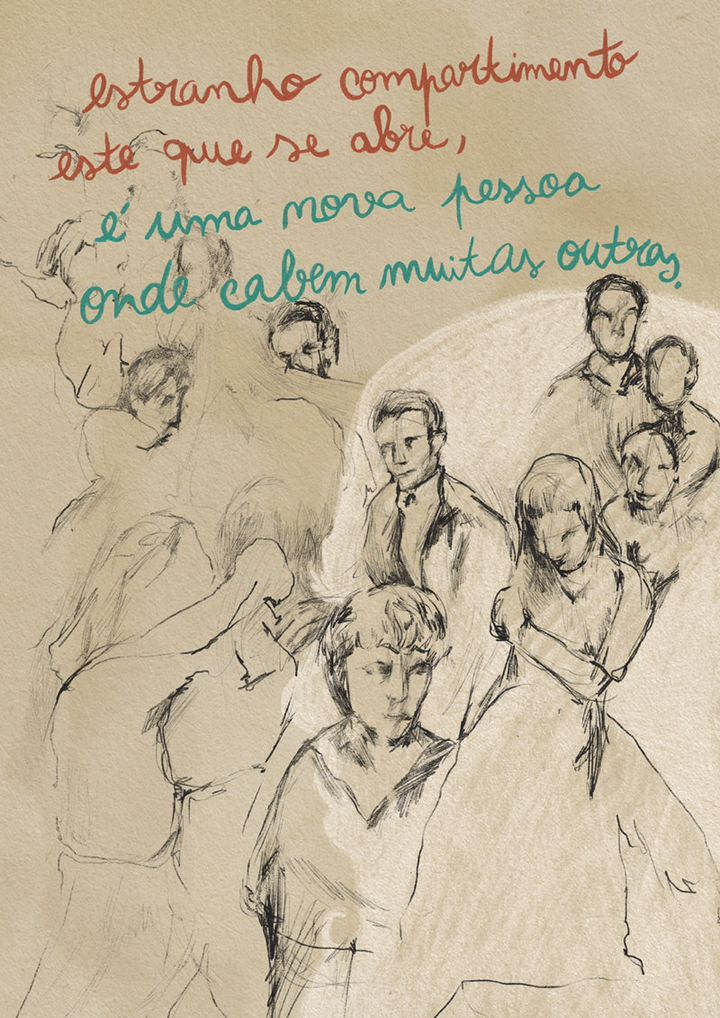 estranho compartimento
este que se abre,
é uma nova pessoa
onde cabem muitas outras.